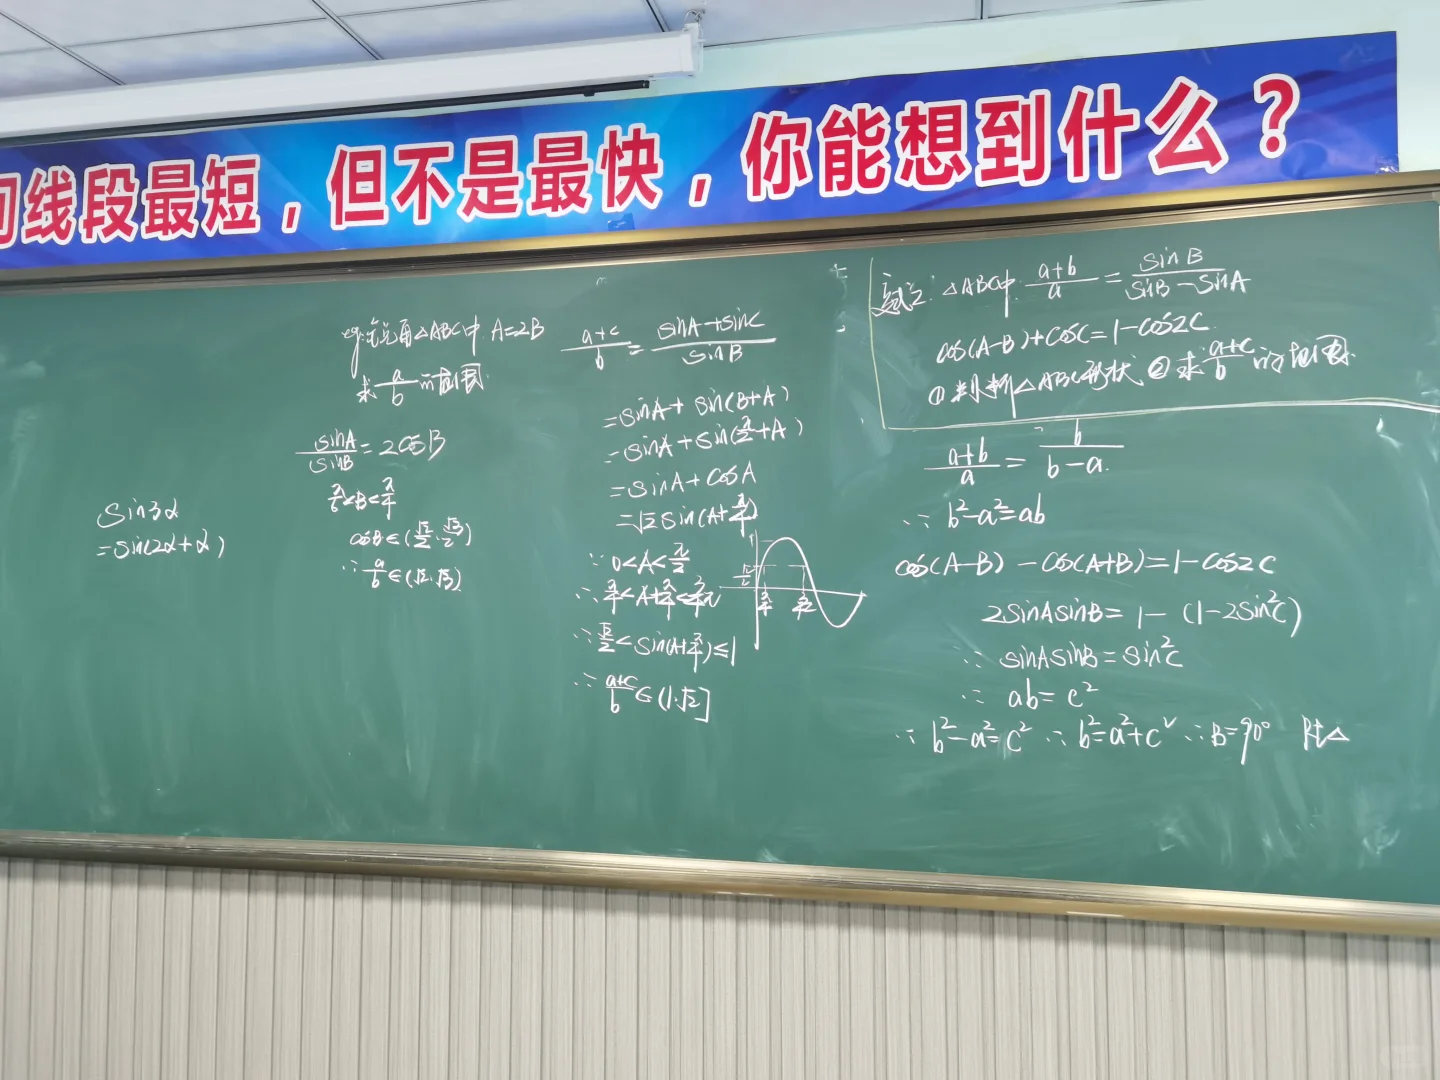 间线段最短，但不是最快，你能想到什么？
sin3α
=sin(2α+α)
eg:锐角△ABC中 A=2B
求 a/b 的范围
sinA/sinB=2cosB
π/6<B<π/4
cosB∈(√2/2,√3/2)
∴ a/b∈(√2,√3)
(a+c)/b=(sinA+sinC)/sinB
=sinA+sin(B+A)
=sinA+sin(π/2+A)
=sinA+cosA
=√2sin(A+π/4)
∵ 0<A<π/2
∴ π/4<A+π/4<3/4π
∴ √2/2<sin(A+π/4)≤1
∴ (a+c)/b∈(1,√2]
1
√2/2
π/4
变式2: △ABC中, (a+b)/a=sinB/(sinB-sinA)
cos(A-B)+cosC=1-cos2C
①判断△ABC形状 ②求(a+c)/b的范围.
(a+b)/a=b/(b-a)
∴ b²-a²=ab
cos(A-B)-cos(A+B)=1-cos2C
2sinAsinB=1-(1-2sin²C)
∴ sinAsinB=sin²C
∴ ab=c²
∴ b²-a²=c² ∴ b²=a²+c² ∴ B=90° Rt△